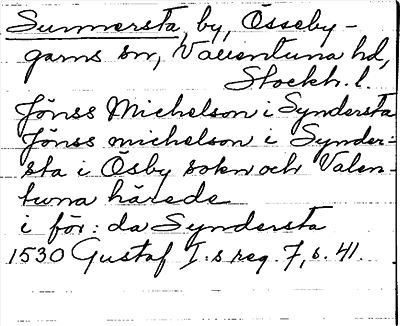 Sunnersta, by, Össeby-
garns sn, Vallentuna hd,
Stockh. l.
Jönss Michelson i Syndersta
Jönss michelson i Synder-
sta i Ösby sokn och Valen-
tuna härede
i för: da Syndersta
1530 Gustaf I:s reg. 7, s. 41.